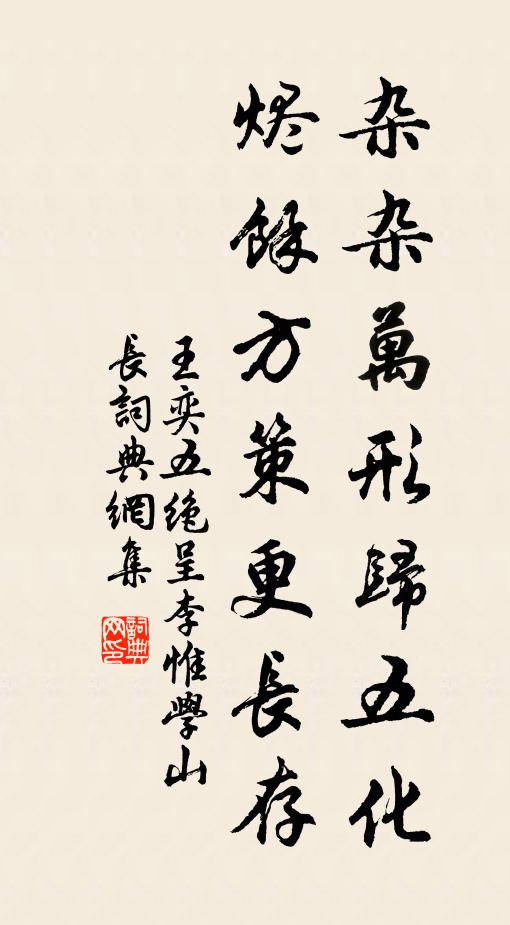 杂杂萬形歸五化
烬餘方策更長存
王奕五绝呈李惟學山
長詞典網集
詞典网印